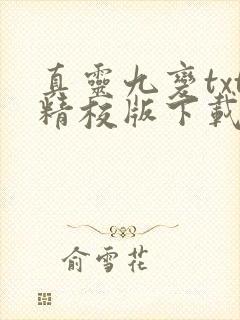 真靈九變txt
精校版下載
俞雪花